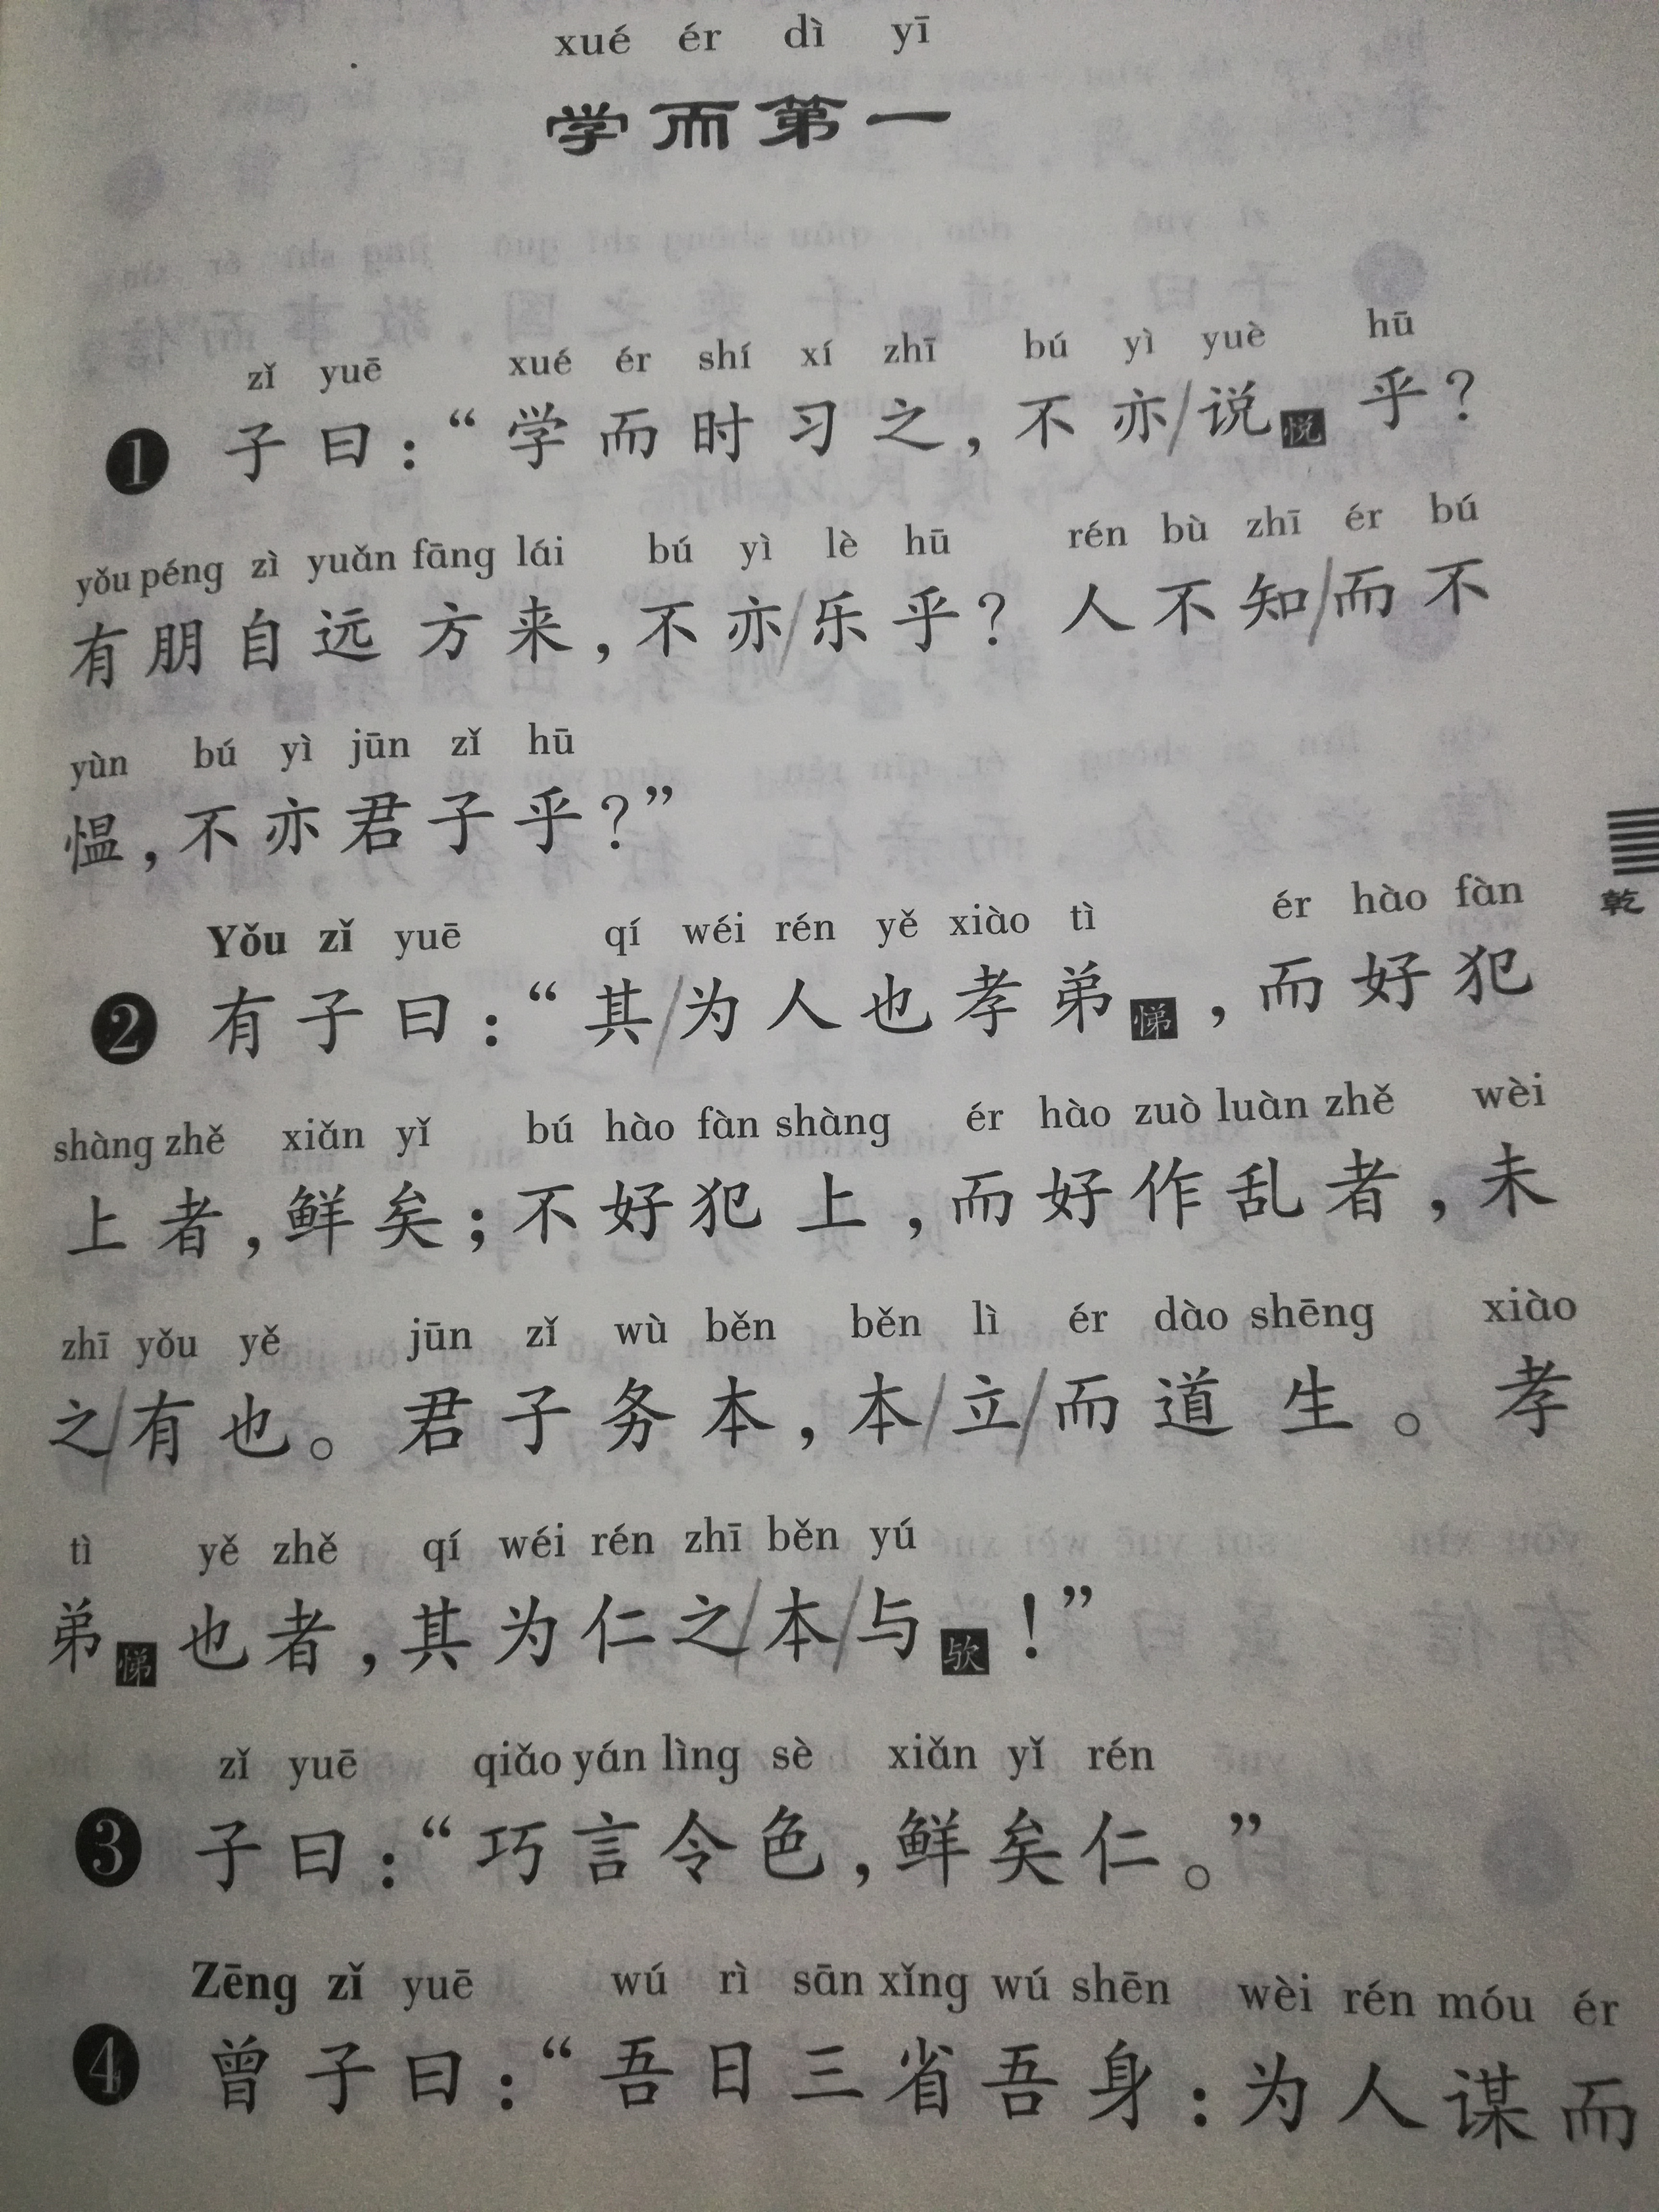 xué ér dì yī
学而第一
zǐ yuē xué ér shí xí zhī bú yì yuè hū
❶ 子曰：“学而时习之，不亦/说悦乎？
yǒu péng zì yuǎn fāng lái bú yì lè hū rén bù zhī ér bú
有朋自远方来，不亦/乐乎？人不知/而不
yùn bú yì jūn zǐ hū
愠，不亦君子乎？”
Yǒu zǐ yuē qí wéi rén yě xiào tì ér hào fàn
❷ 有子曰：“其/为人也孝弟悌，而好犯
shàng zhě xiǎn yǐ bú hào fàn shàng ér hào zuò luàn zhě wèi
上者，鲜矣；不好犯上，而好作乱者，未
zhī yǒu yě jūn zǐ wù běn běn lì ér dào shēng xiào
之/有也。君子务本，本/立/而道生。孝
tì yě zhě qí wéi rén zhī běn yú
弟悌也者，其为仁之/本/与欤！”
zǐ yuē qiǎo yán lìng sè xiǎn yǐ rén
❸ 子曰：“巧言令色，鲜矣仁。”
Zēng zǐ yuē wú rì sān xǐng wú shēn wèi rén móu ér
❹ 曾子曰：“吾日三省吾身：为人谋而
乾